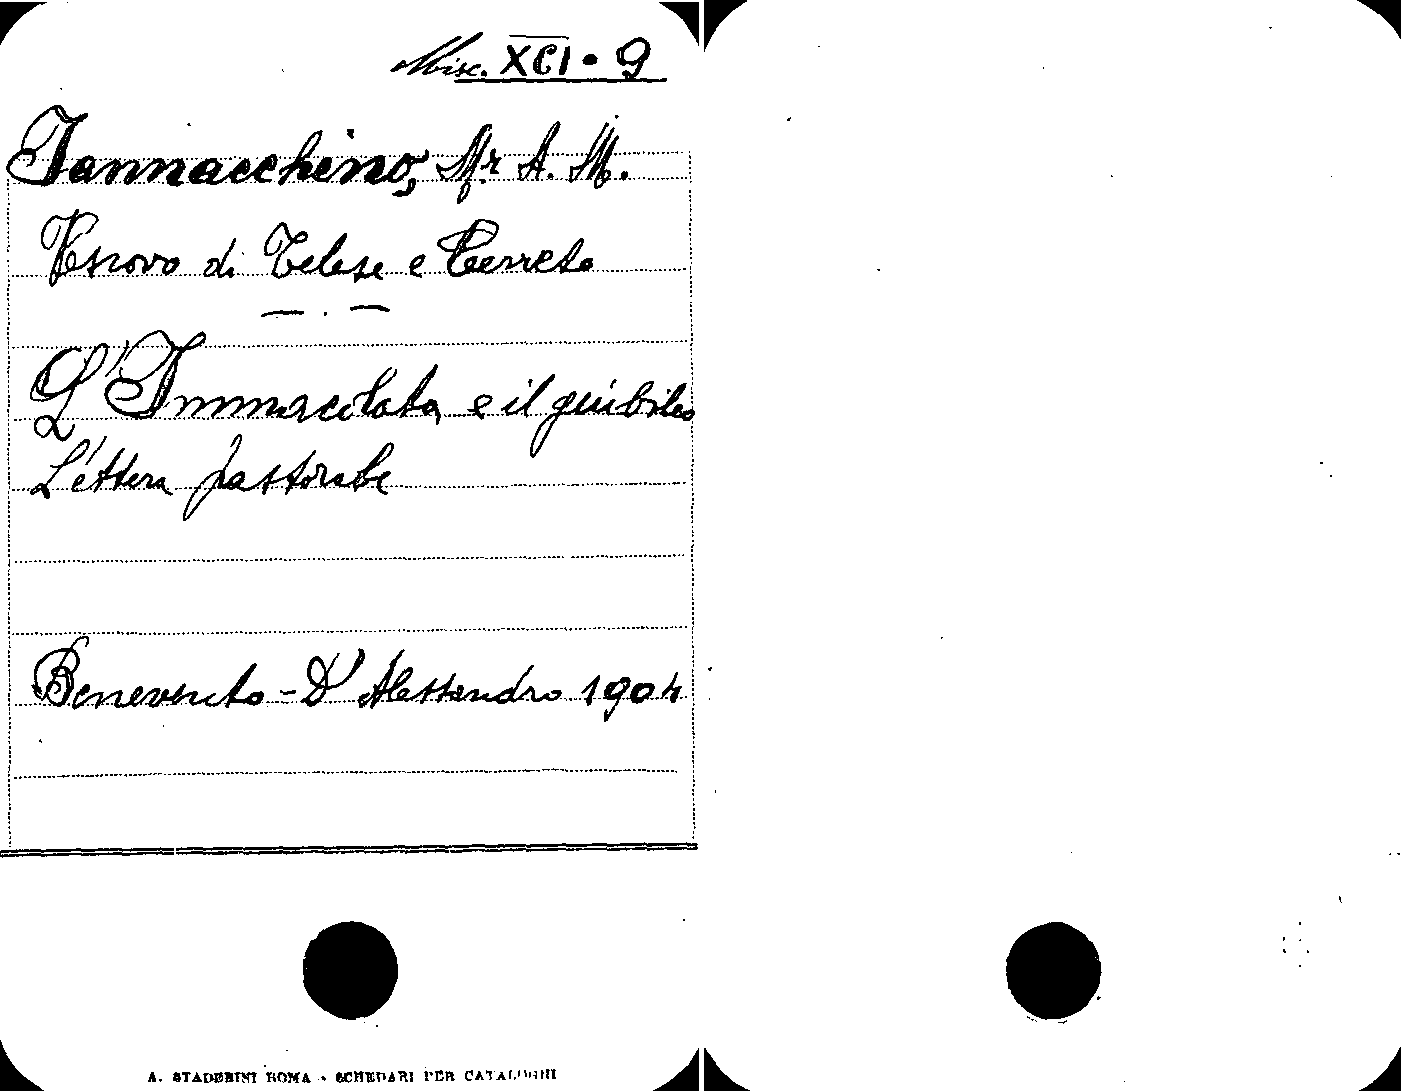 Misc. XCI • 9
Iannacchino, Mr A. M.
Vescovo di Telese e Cerreto
L'Immacolata e il giubileo
Lettera pastorale
Benevento - D'Alessandro 1904
A. STADERINI ROMA - SCHEDARI PER CATALOGHI